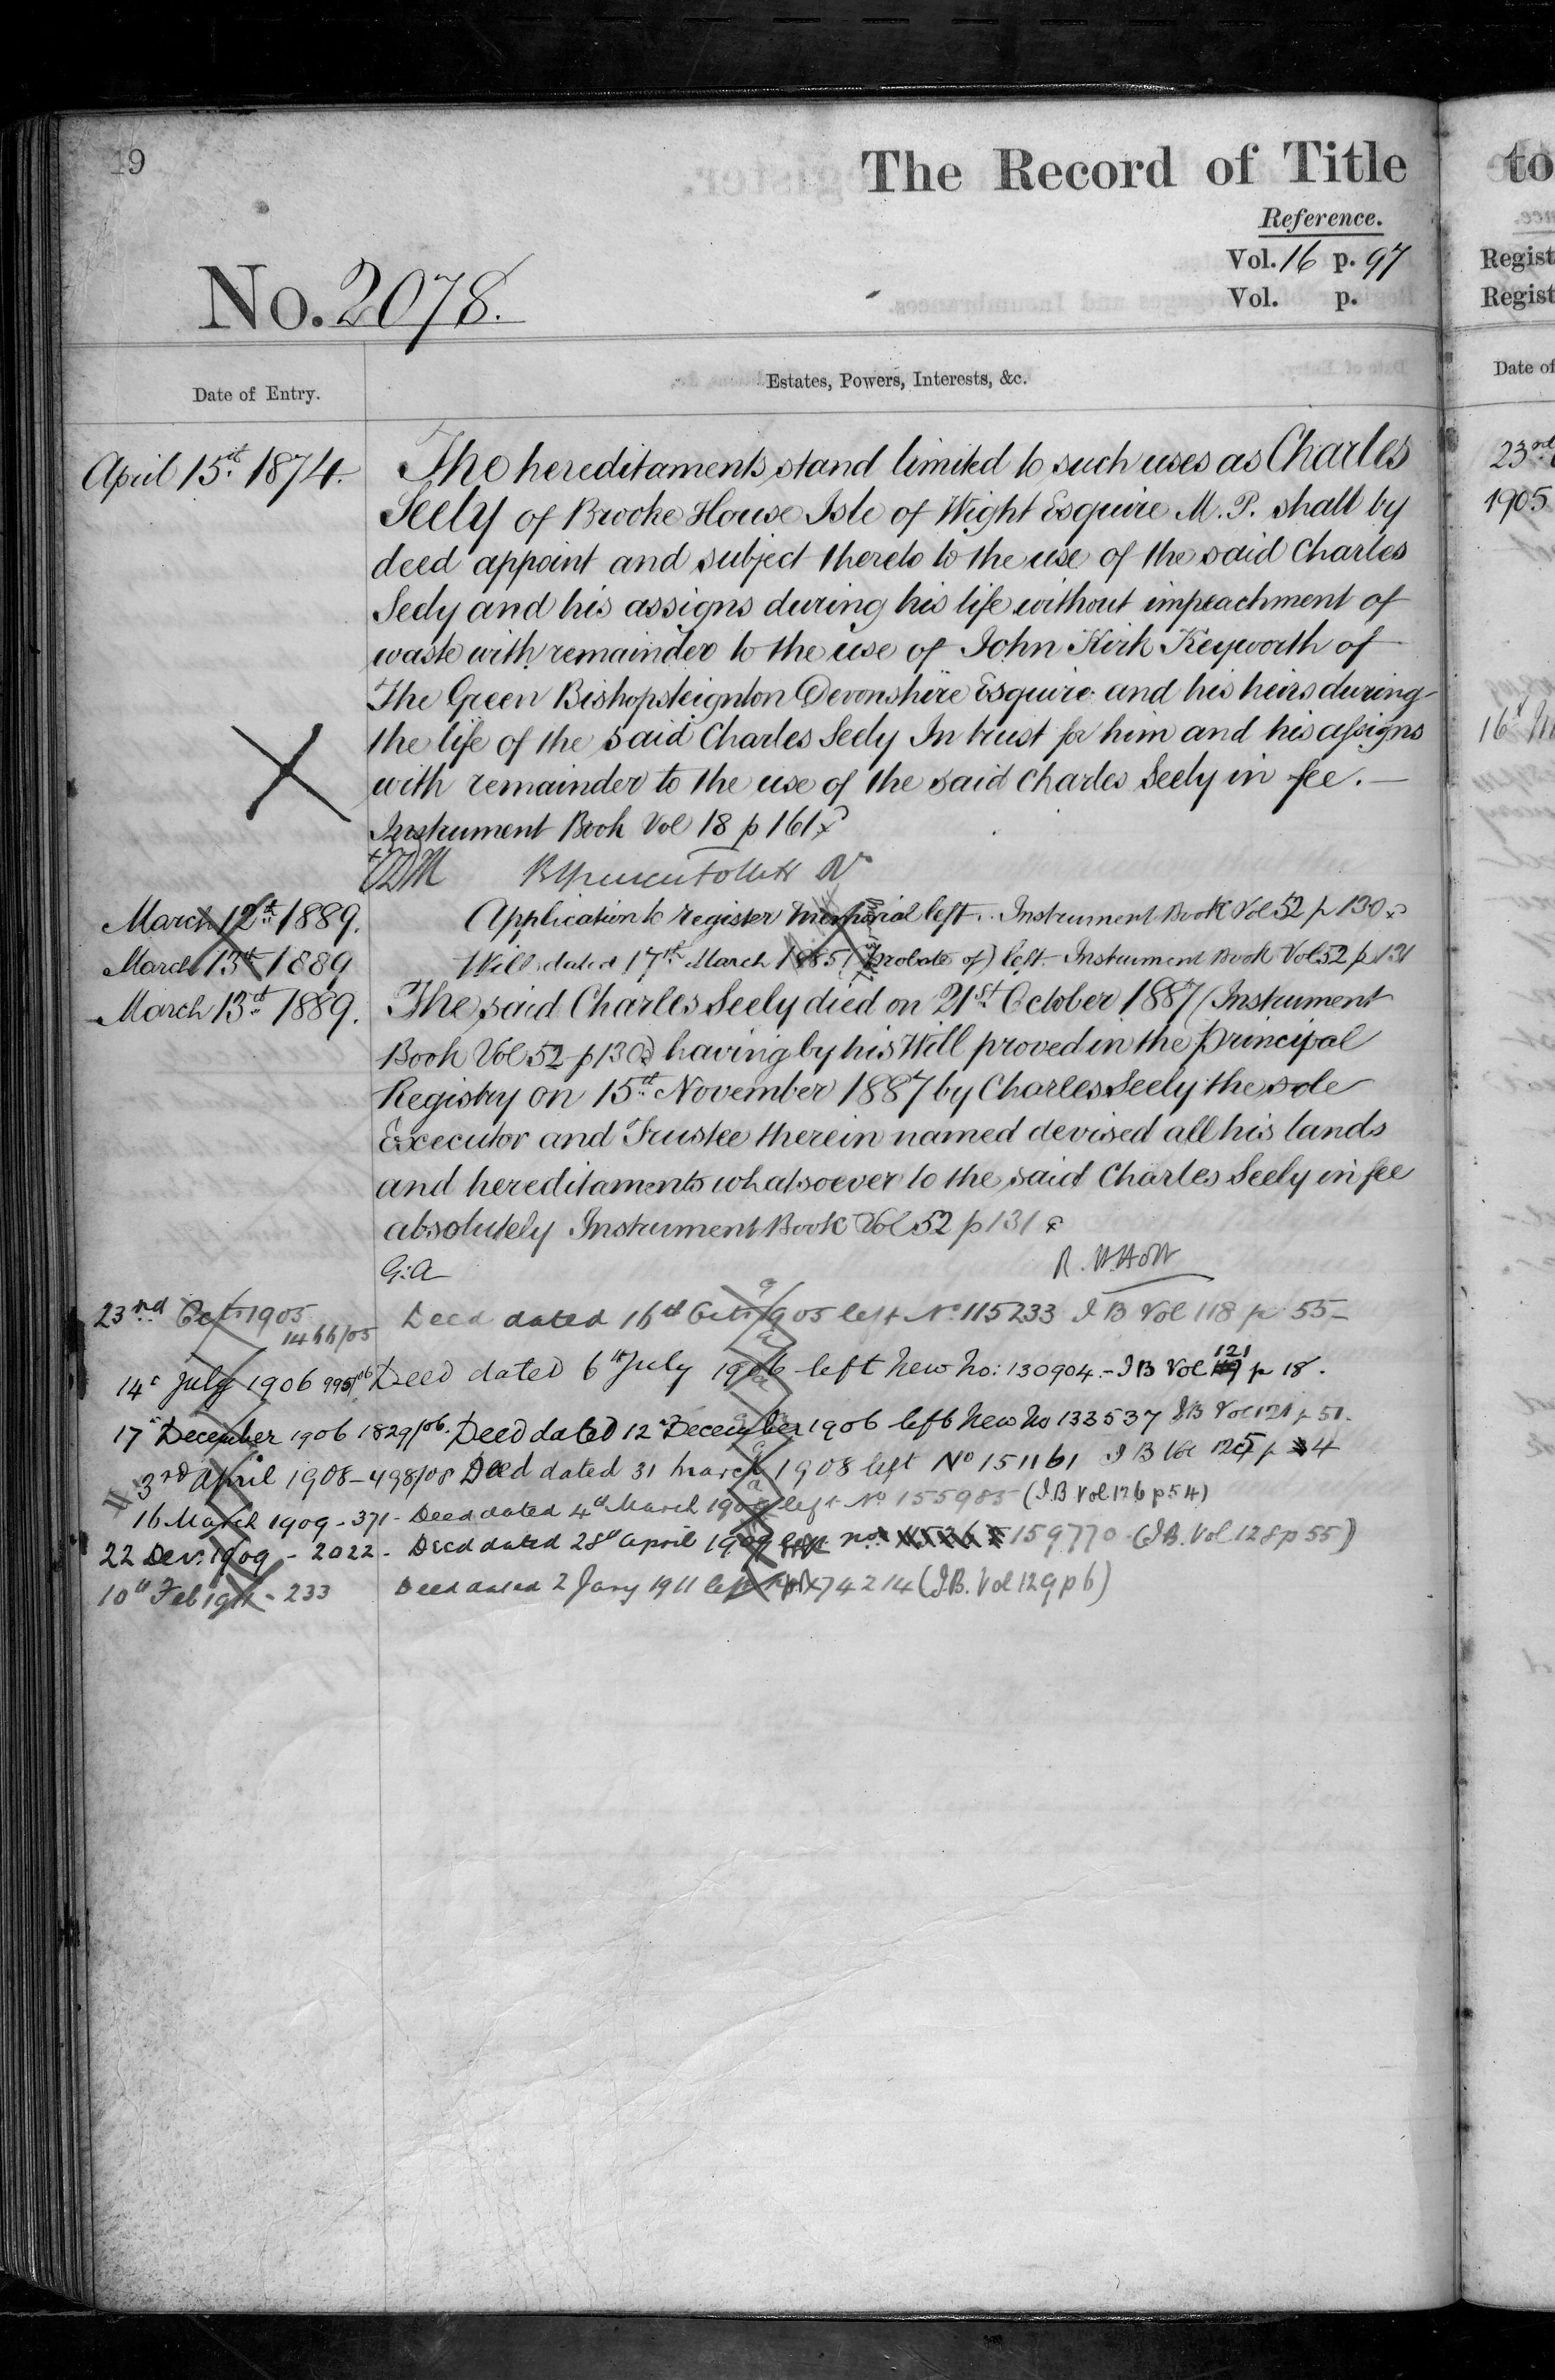 19
The Record of Title
Reference.
Vol. 16 p. 97
Vol. p.
No. 2078.
Date of Entry.
Estates, Powers, Interests, &c.
April 15th 1874.
The hereditaments stand limited to such uses as Charles
Seely of Brooke House Isle of Wight Esquire M.P. shall by
deed appoint and subject thereto to the use of the said Charles
Seely and his assigns during his life without impeachment of
waste with remainder to the use of John Kirk Keyworth of
The Green Bishopsteignton Devonshire Esquire and his heirs during
the life of the said Charles Seely In trust for him and his assigns
with remainder to the use of the said Charles Seely in fee.—
Instrument Book Vol 18 p 161
March 12th 1889. Application to register memorial left. Instrument Book Vol 52 p 130
March 13th 1889 Will dated 17th March 1885 (Probate of) left. Instrument Book Vol 52 p 131
March 13th 1889. The said Charles Seely died on 21st October 1887 (Instrument
Book Vol 52 p 130) having by his Will proved in the Principal
Registry on 15th November 1887 by Charles Seely the sole
Executor and Trustee therein named devised all his lands
and hereditaments whatsoever to the said Charles Seely in fee
absolutely Instrument Book Vol 52 p 131
G:A
23rd Oct 1905 1466/05 Deed dated 16th Oct 1905 left No 115233 I B Vol 118 p 55-
14 July 1906 995/06 Deed dated 6th July 1906 left New No: 130904.- I B Vol 121 p 18.
17 December 1906 1829/06. Deed dated 12th December 1906 left New No 133537 I B Vol 121 p 51.
3rd April 1908-498/08 Deed dated 31 March 1908 left No 151161 I B Vol 125 p 4
16 March 1909-371- Deed dated 4th March 1909 left No 155985 (I.B Vol 126 p 54)
22 Decr 1909 - 2022- Deed dated 28th April 1909 left No 159770 (I.B. Vol 128 p 55)
10th Feb 1911 - 233 Deed dated 2 Jany 1911 left 174214 (I.B. Vol 129 p 6)
to
Regist
Regist
Date of
23rd
1905
16